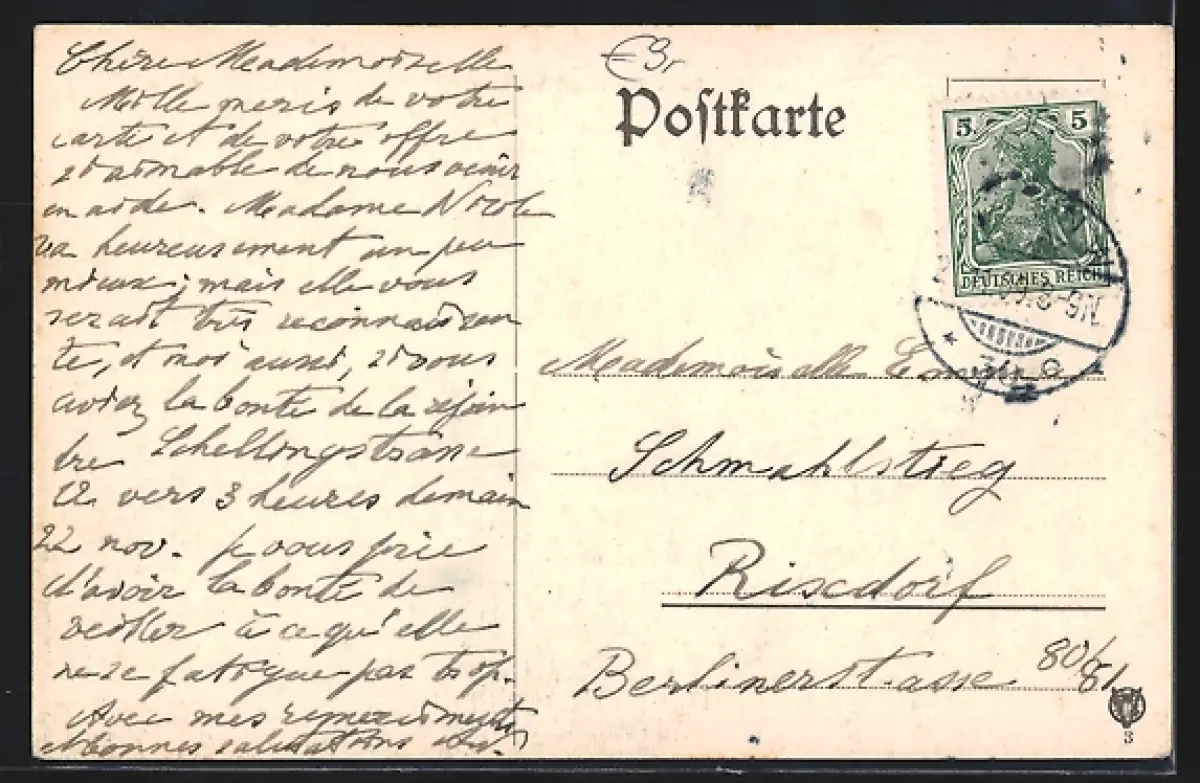 Chère Mademoiselle
Mille mercis de votre
carte et de votre offre
si aimable de nous venir
en aide. Madame Nicole
va heureusement un peu
mieux; mais elle vous
serait très reconnaissan
te, et moi aussi, si vous
aviez la bonté de la rejoin
dre Schellingstrasse
12 vers 3 heures demain
22 nov. je vous prie
d'avoir la bonté de
veiller à ce qu'elle
ne se fatigue pas trop.
Avec mes remerciments
et bonnes salutations
€9,-
Postkarte
5 5
DEUTSCHES REICH
8-9N.
Mademoiselle Emma
Schmahlstieg
Rixdorf
Berlinerstrasse 80/81
3